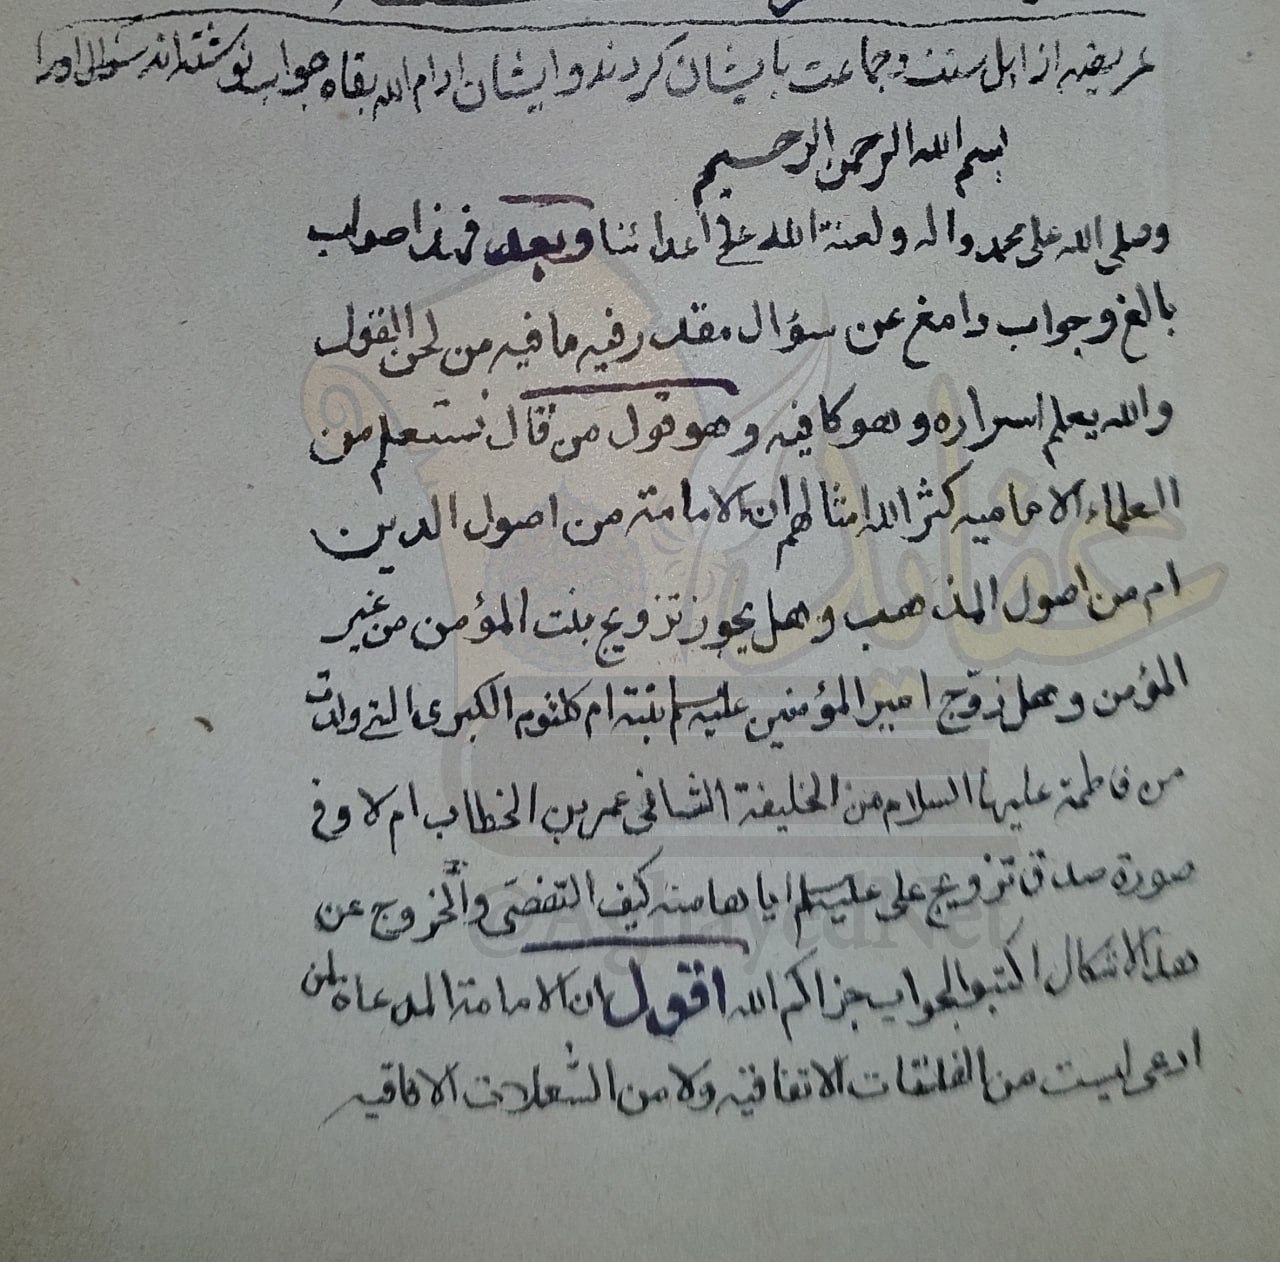 عریضه از اهل سنت و جماعت بایشان کردند و ایشان ادام الله بقاه جواب نوشته‌اند سؤال اورا
بسم الله الرحمن الرحیم
وصلی الله علی محمد واله ولعنة الله علی اعدائنا وبعد فهذا صواب
بالغ وجواب دامغ عن سؤال مقدر فیه مافیه من لحن القول
والله یعلم اسراره وهو کافیه وهو قول من قال نستعلم من
العلماء الامامیه کثر الله امثالهم ان الامامة من اصول الدین
ام من اصول المذهب وهل یجوز تزویج بنت المؤمن من غیر
المؤمن وهل زوّج امیر المؤمنین علیه السلم بنته ام کلثوم الکبری التی ولدت
من فاطمة علیها السلام من الخلیفة الثانی عمر بن الخطاب ام لا وفی
صورة صدق تزویج علی علیه السلم ایاها منه کیف التفصّی والخروج عن
هذا الاشکال اکتبوا الجواب جزاکم الله اقول ان الامامة المدعاة لمن
ادعی لیست من الفلتات الاتفاقیه ولا من الشعلات الافاقیه
عقاید
@AghayedNet